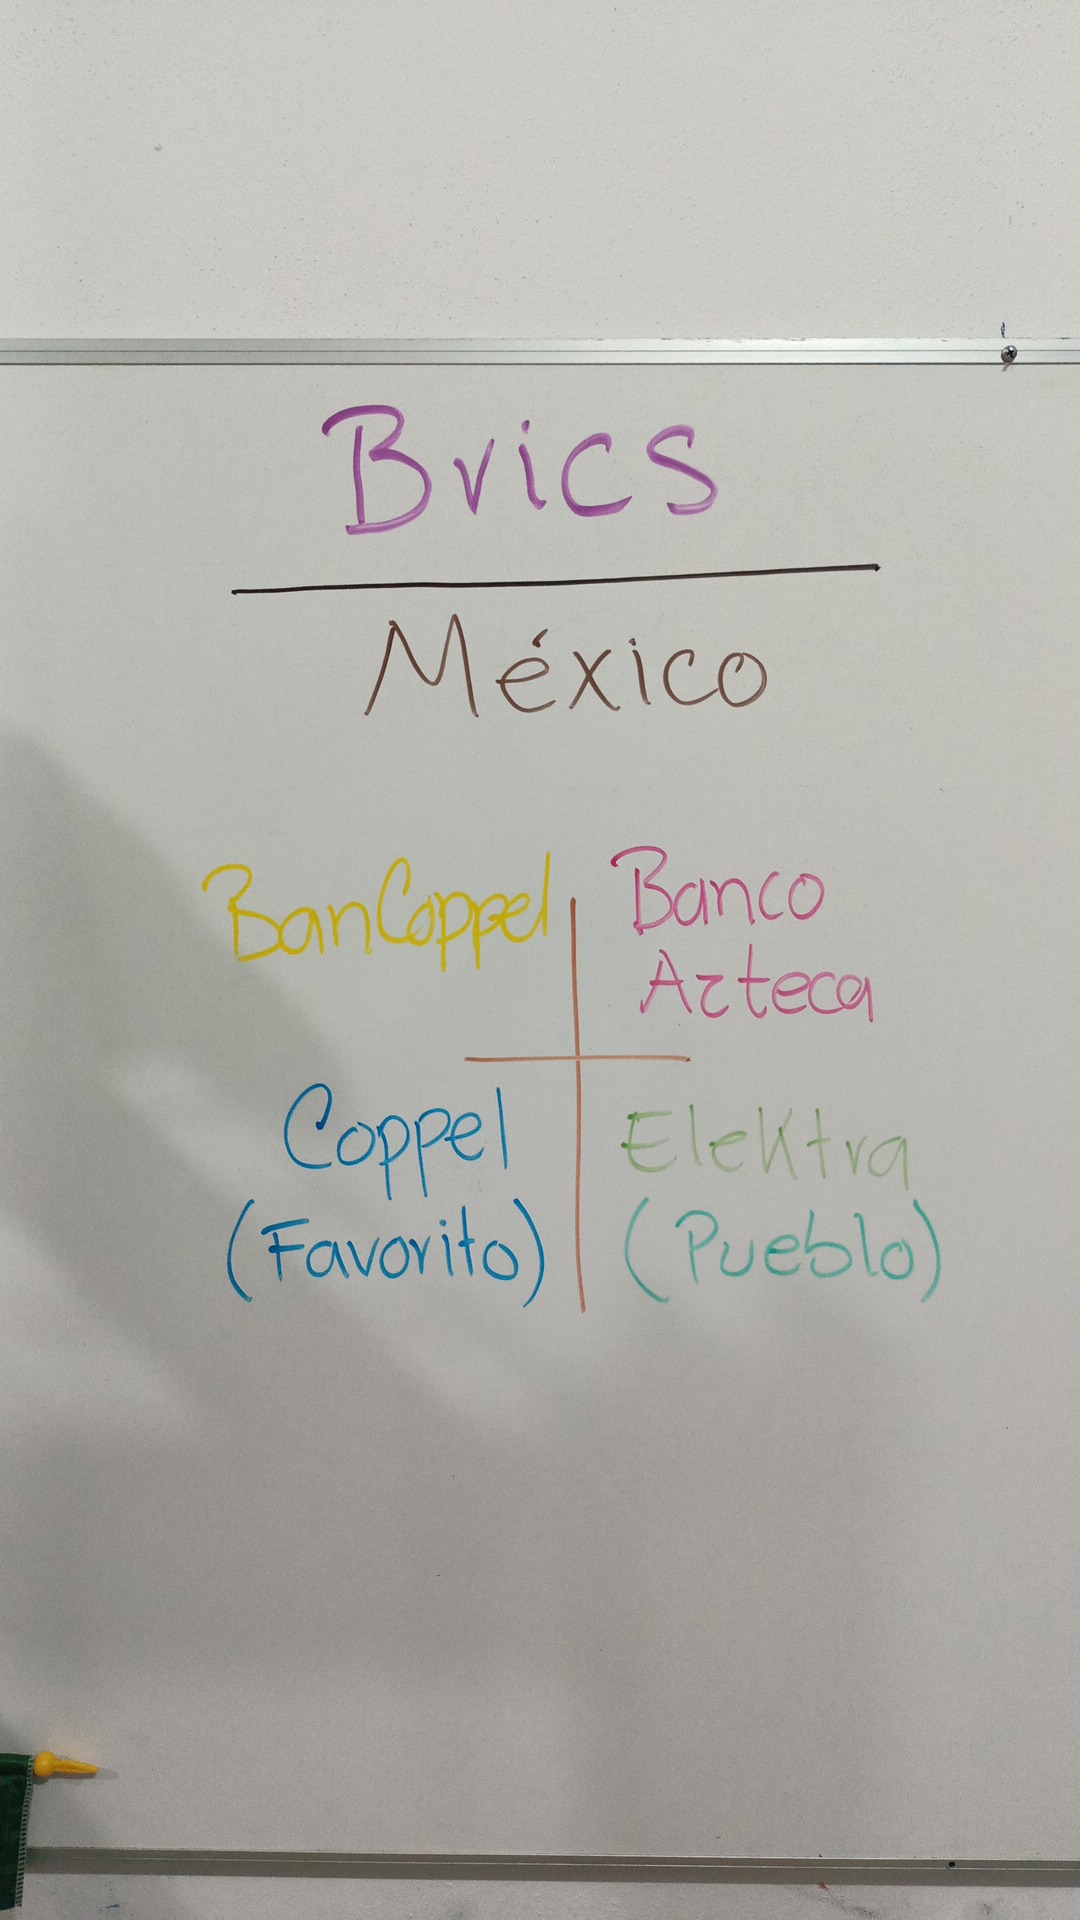 Brics
México
BanCoppel
Banco
Azteca
Coppel
(Favorito)
Elektra
(Pueblo)